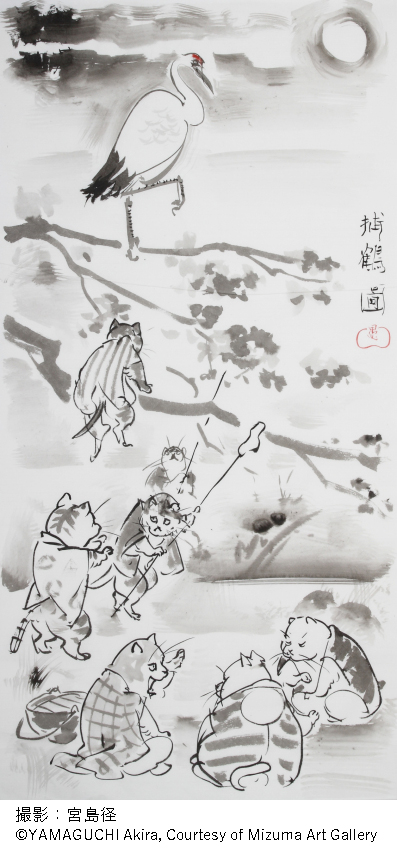 鶴圖
撮影：宮島径
©YAMAGUCHI Akira, Courtesy of Mizuma Art Gallery